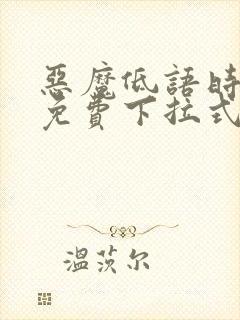 惡魔低語時
免費下拉式
溫茨尔